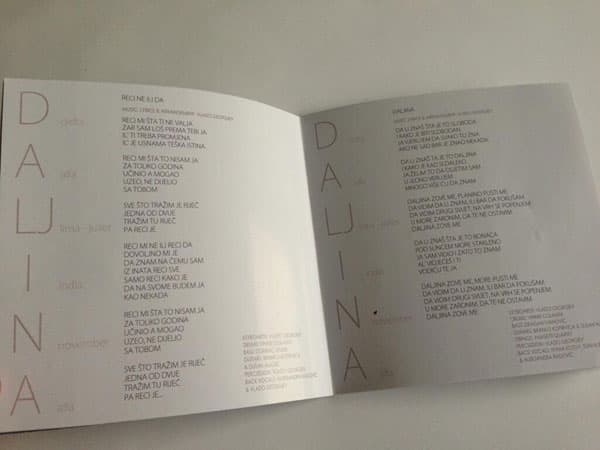 D
A
LJ
I
N
A
delta
alfa
lima - juliet
india
november
alfa
RECI NE ILI DA
MUSIC, LYRICS & ARRANGEMENT: VLADO GEORGIEV
RECI MI ŠTA TI NE VALJA
ZAR SAM LOŠ PREMA TEBI JA
IL' TI TREBA PROMJENA
IL' JE USNAMA TEŠKA ISTINA
RECI MI ŠTA TO NISAM JA
ZA TOLIKO GODINA
UČINIO A MOGAO
UZEO, NE DIJELIO
SA TOBOM
SVE ŠTO TRAŽIM JE RIJEČ
JEDNA OD DVIJE
TRAŽIM TU RIJEČ
PA RECI JE
RECI MI NE ILI RECI DA
DOVOLJNO MI JE
DA ZNAM NA ČEMU SAM
IZ INATA RECI SVE
SAMO RECI KAKO JE
DA NA SVOME BUDEM JA
KAO NEKADA
RECI MI ŠTA TO NISAM JA
ZA TOLIKO GODINA
UČINIO A MOGAO
UZEO, NE DIJELIO
SA TOBOM
SVE ŠTO TRAŽIM JE RIJEČ
JEDNA OD DVIJE
TRAŽIM TU RIJEČ
PA RECI JE...
VLADO GEORGIEV
& VLADO GEORGIEV
D
A
LJ
I
N
A
november
DALJINA
MUSIC, LYRICS & ARRANGEMENT: VLADO GEORGIEV
DA LI ZNAŠ ŠTA JE TO SLOBODA
I KAKO JE BITI SLOBODAN
JA VJERUJEM DA SVAKO TU ZNA
AKO NE SAD BAR JE ZNAO NEKADA
DA LI ZNAŠ ŠTA JE TO DALJINA
I KAKO JE KAD SE DALEKO
JA ŽELIM TO DA OSJETIM SAM
U JEDNO VJERUJEM
MNOGO VIŠE ĆU DA ZNAM
DALJINA ZOVE ME, PLANINO PUSTI ME
DA VIDIM DA LI ZNAM, ILI BAR DA POKUŠAM
DA VIDIM DRUGI SVIJET, NA VRH SE POPENJEM
U MORE ZARONIM, DA TE NE OSTAVIM
DALJINA ZOVE ME
DA LI ZNAŠ ŠTA JE TO BONACA
POD SUNCEM MORE STAKLENO
JA SAM VIDIO I ZATO TO ZNAM
AL' VIDJEĆEŠ I TI
VODIĆU TE JA
DALJINA ZOVE ME, MORE PUSTI ME
DA VIDIM DA LI ZNAM, ILI BAR DA POKUŠAM
DA VIDIM DRUGI SVIJET, NA VRH SE POPENJEM
U MORE ZARONIM, DA TE NE OSTAVIM
DALJINA ZOVE ME
VLADO GEORGIEV